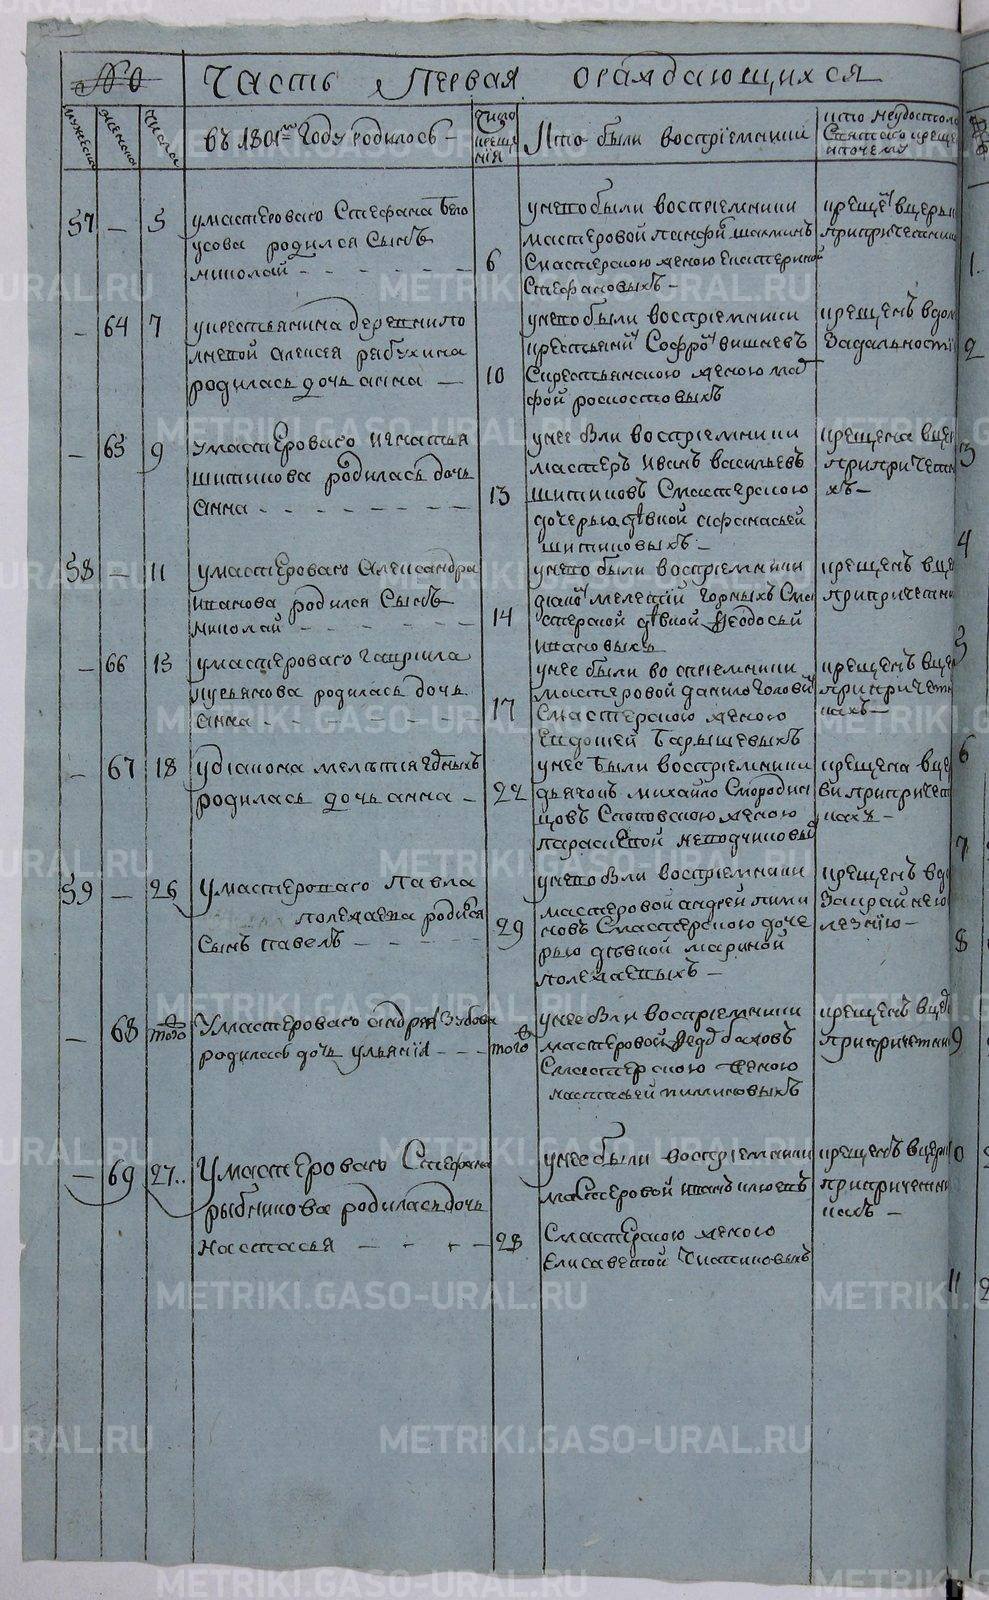 № 0 Часть Первая ораждающихся
мужеска
женска
числа
въ 1801мъ Году родилось
число
креще
нїя
Кто были восприемники
кто неудостоло
Святаго креще
ипочему
57 — 5 умастероваго Стефана Бело
усова родился Сынъ
николай
6
унево были восприемники
мастеровой панфи шахминъ
Смастерскою женою Екатериной
Стефановыхъ
креще вцеркви
припричетник
— 64 7 укрестьянина деревни по
Алексея рябухина
родилась дочь анна
10
унево были восприемники
крестьяни Софро вишневъ
Скрестьянскою женою ма
фой ростовыхъ
крещенъ вдом
Задальностї
— 65 9 умастероваго игнатья
шитикова родилась дочь
анна
13
унее были восприемники
мастеръ иванъ васильевъ
шитиковъ Смастерскою
дочерью двкой афанасьей
шитиковыхъ
крещена вцер
припричетн
хъ
58 — 11 умастероваго Александра
иванова родился Сынъ
николай
14
унево были восприемники
дїако мелетий горныхъ Сма
стерской двкой Ѳеодосьей
ивановыхъ
крещенъ вце
припричетни
— 66 15 умастероваго гаврила
лукьянова родилась дочь
анна
17
унее были во сприемники
мастеровой данило головї
Смастерскою женою
Евдокией барышевыхъ
крещенъ вце
припричетн
кахъ
— 67 18 удїакона мелѣтия горныхъ
родилась дочь анна
22
унее были восприемники
дьячокъ михайло Смородин
цовъ Споповскою женою
параскевой
крещена вцер
ви припричет
кахъ
59 — 26 умастероваго павла
полежаева родился
Сынъ павелъ
29
унево были восприемники
мастеровой андрей пими
новъ Смастерскою доче
рью двкой мариной
полежаевыхъ
крещенъ вдо
Закрайнею
лезнїю
— 68 того Умастероваго андрея Зубова
родилась дочь ульянїя
того
унее были восприемники
мастеровой Ѳедо баховъ
Смастерскою женою
настасьей пиминовыхъ
крещенъ вце
припричетни
— 69 27 Умастероваго Стефана
рыбникова родилась дочь
Настасья
28
унее были восприемники
мастеровой иванъ илюевъ
Смастерскою женою
Елисаветой
крещенъ вцерк
припричетни
кахъ
1
2
3
4
5
6
7
8
9
10
11
METRIKI.GASO-URAL.RU